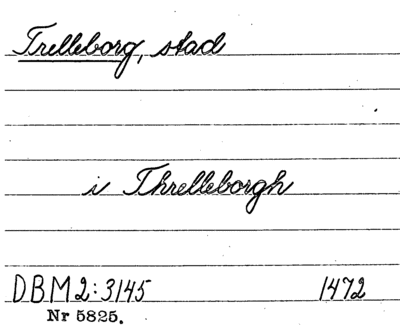 Trelleborg, stad
i Threlleborgh
DBM 2:3145 1472
Nr 5825.